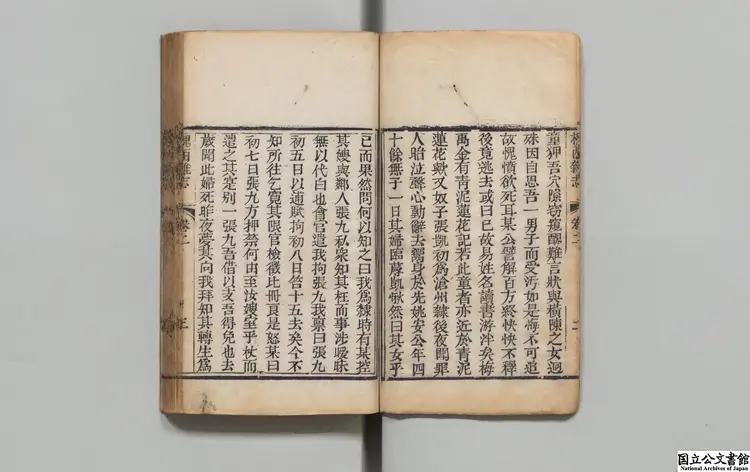 槐西雜志 卷二 二
童狎吾穴隙竊窺醜難言狀與橫陳之女迥
殊因自思吾一男子而受污如是悔不可追
故愧憤欲死耳某公譬解百方終怏怏不釋
後竟逃去或曰已故易姓名讀書游泮矣梅
禹金有青泥蓮花記若此童者亦近於青泥
蓮花歟又奴子張凱初爲滄州隸後夜聞罪
人暗泣聲心動辭去鬻身於先姚安公年四
十餘無子一日其婦臨蓐凱愀然曰其女乎
已而果然問何以知之曰我爲隸時有某控
其嫂與鄰人張九私衆知其枉而事涉曖昧
無以代白也會官遣我拘張九我稟曰張九
初五日以逋賦拘初八日笞十五去矣今不
知所往乞寬其限官檢徵比冊良是怒某曰
初七日張九方押禁何由至汝嫂室乎杖而
遣之其寔別一張九吾借以支吾得免也去
歲聞此婦死昨夜夢其向我拜知其轉生爲
槐西雜志 卷二 三
国立公文書館
National Archives of Japan